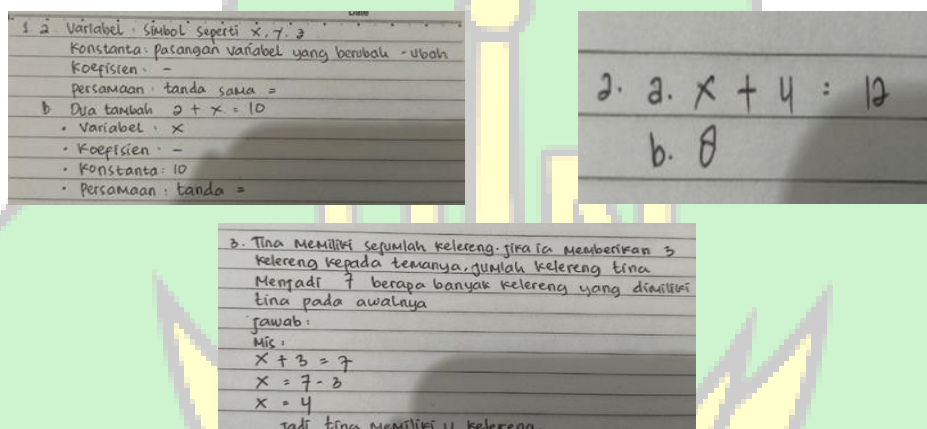 1 a. Variabel : Simbol seperti x, y, z
Konstanta : pasangan variabel yang berubah - ubah
Koefisien : -
persamaan : tanda sama =
b Dua tambah 2 + x = 10
• Variabel : x
• Koefisien : -
• Konstanta : 10
• Persamaan : tanda =
2. a. x + 4 = 12
b. 8
3. Tina memiliki sejumlah kelereng. jika ia memberikan 3
kelereng kepada temanya, jumlah kelereng tina
Menjadi 7 berapa banyak kelereng yang dimiliki
tina pada awalnya
Jawab :
Mis :
x + 3 = 7
x = 7 - 3
x = 4
Jadi tina memiliki 4 kelereng